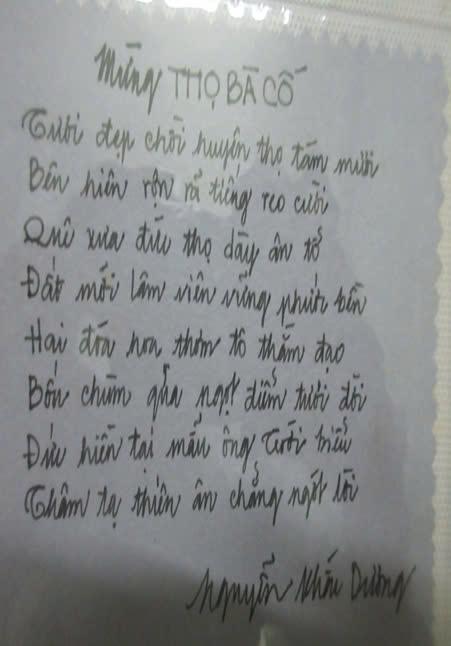 Mừng THỌ BÀ CỐ
Tười đẹp chồi huyên thọ tám mười
Bên hiên rộn rã tiếng reo cười
Quê xưa điều thọ dày ân tổ
Đất mới Lâm viên vững phước bền
Hai đóa hoa thơm tô thắm đạo
Bốn chùm qủa ngọt điểm tươi đời
Đức hiền tại mẫu ông trời
Thâm tạ thiên ân chẳng ngớt lời
Nguyễn Khắc Dương